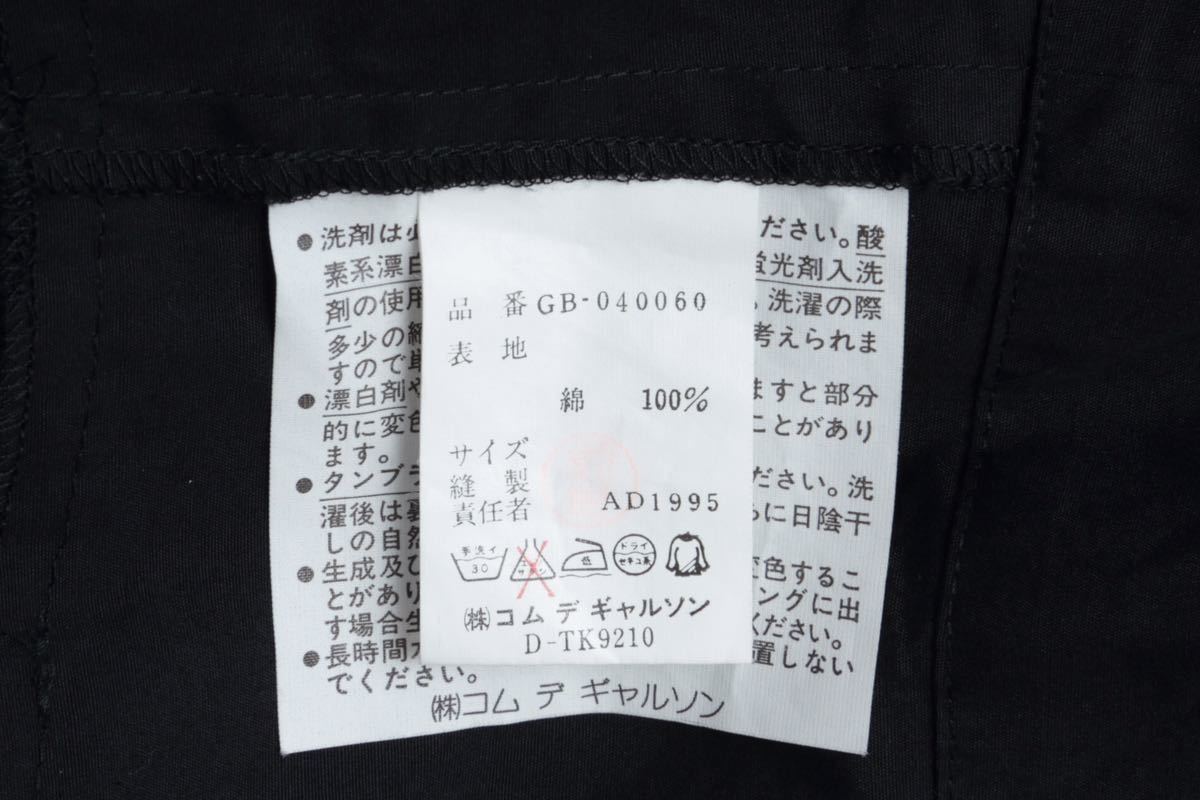 品 番 GB-040060
表 地
綿 100%
サイズ
縫 製
責任者 AD1995
手洗イ
30
エンソ
サラシ
低
ドライ
セキユ系
㈱コム デ ギャルソン
D-TK9210
● 洗剤は必 ださい。酸
素系漂白 蛍光剤入洗
剤の使用 。洗濯の際
多少の細 考えられま
すので単
● 漂白剤や ますと部分
的に変色 ことがあり
ます。
● タンブラ ださい。洗
濯後は裏 らに日陰干
しの自然
● 生成及び 変色するこ
とがあり ングに出
す場合生 ください。
● 長時間水 置しない
でください。
㈱コム デ ギャルソン